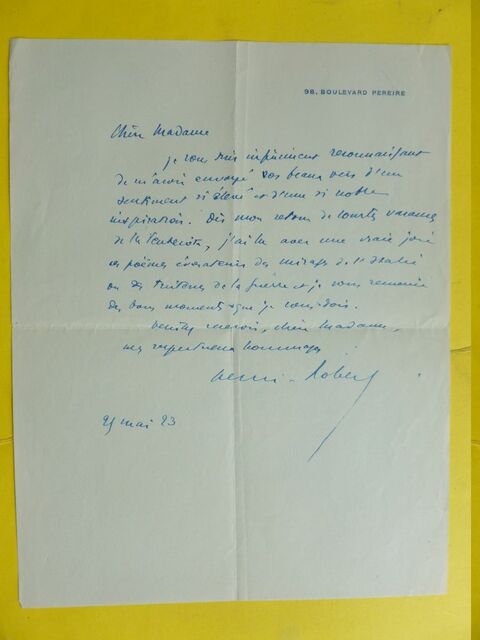 98, BOULEVARD PEREIRE
Chère Madame
je vous suis infiniment reconnaissant
de m'avoir envoyé vos beaux vers d'un
sentiment si élevé et d'une si noble
inspiration. Dès mon retour de courtes vacances
de la Pentecôte, j'ai lu avec une vraie joie
ces poèmes évocateurs des mirages de l'Italie
ou des tristesses de la guerre et je vous remercie
des bons moments que je vous dois.
Veuillez recevoir, chère Madame,
mes respectueux hommages
Henri-Robert
25 mai 23